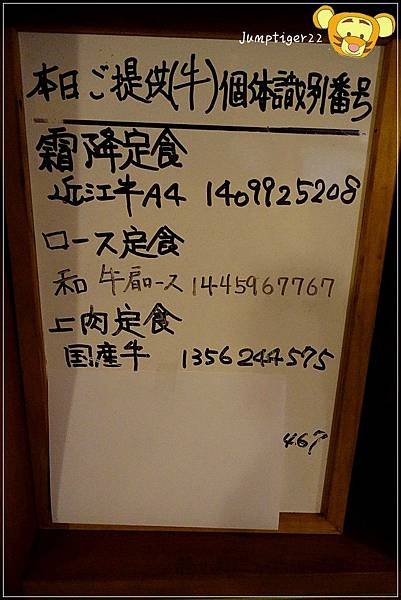 Jumptiger22
本日ご提供(牛)個体識別番号
霜降定食
近江牛A4 1409925208
ロース定食
和牛肩ロース 1445967767
上肉定食
国産牛 1356244575